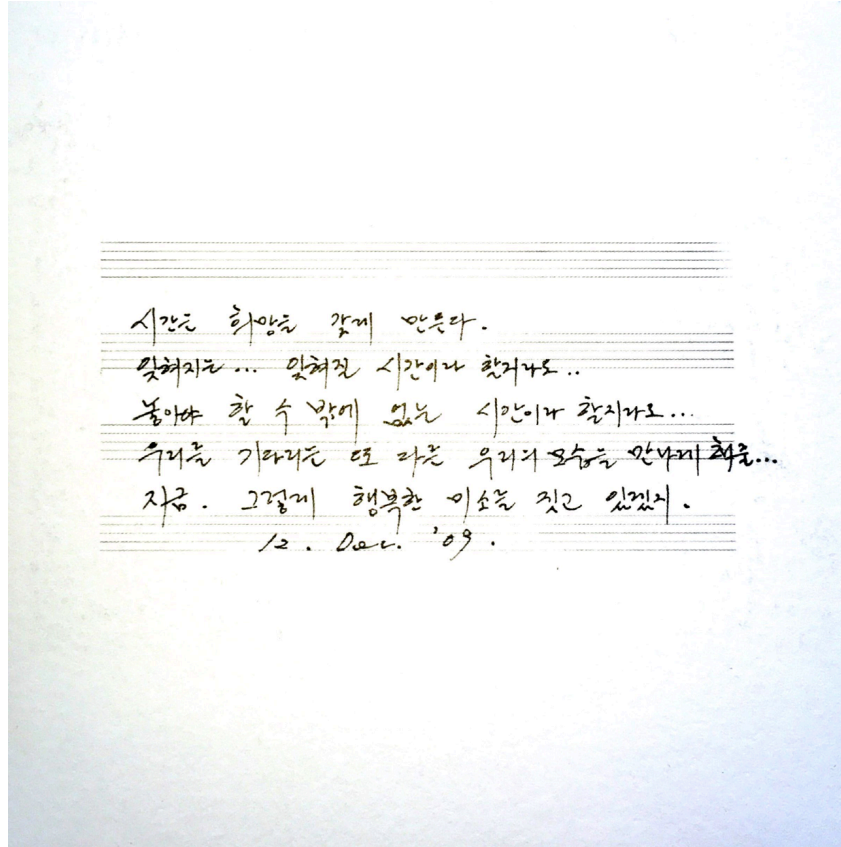 시간은 희망을 갖게 만든다.
잊혀지는... 잊혀질 시간이라 할지라도..
놓아야 할 수 밖에 없는 시간이라 할지라도...
우리를 기다리는 또 다른 우리의 모습을 만나게 해줄...
지금. 그렇게 행복한 미소를 짓고 있겠지.
12. Dec. '09.